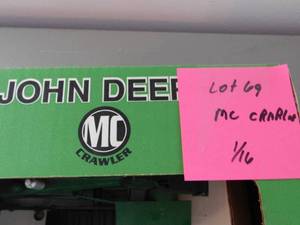 JOHN DEER
MC
CRAWLER
Lot 69
MC CRAWLER
1/16